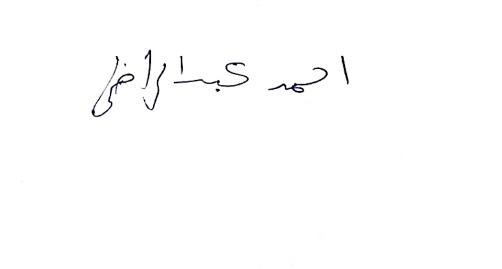 احمد عبدالراضى